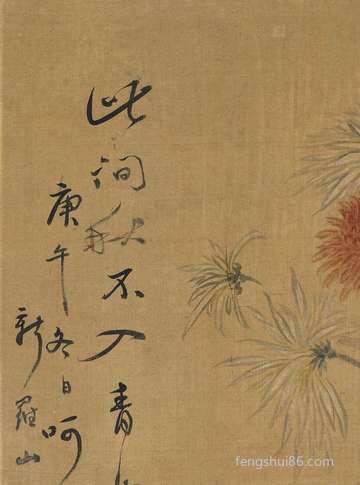 此间秋不入青
庚午冬日呵
新罗山
fengshui86.com